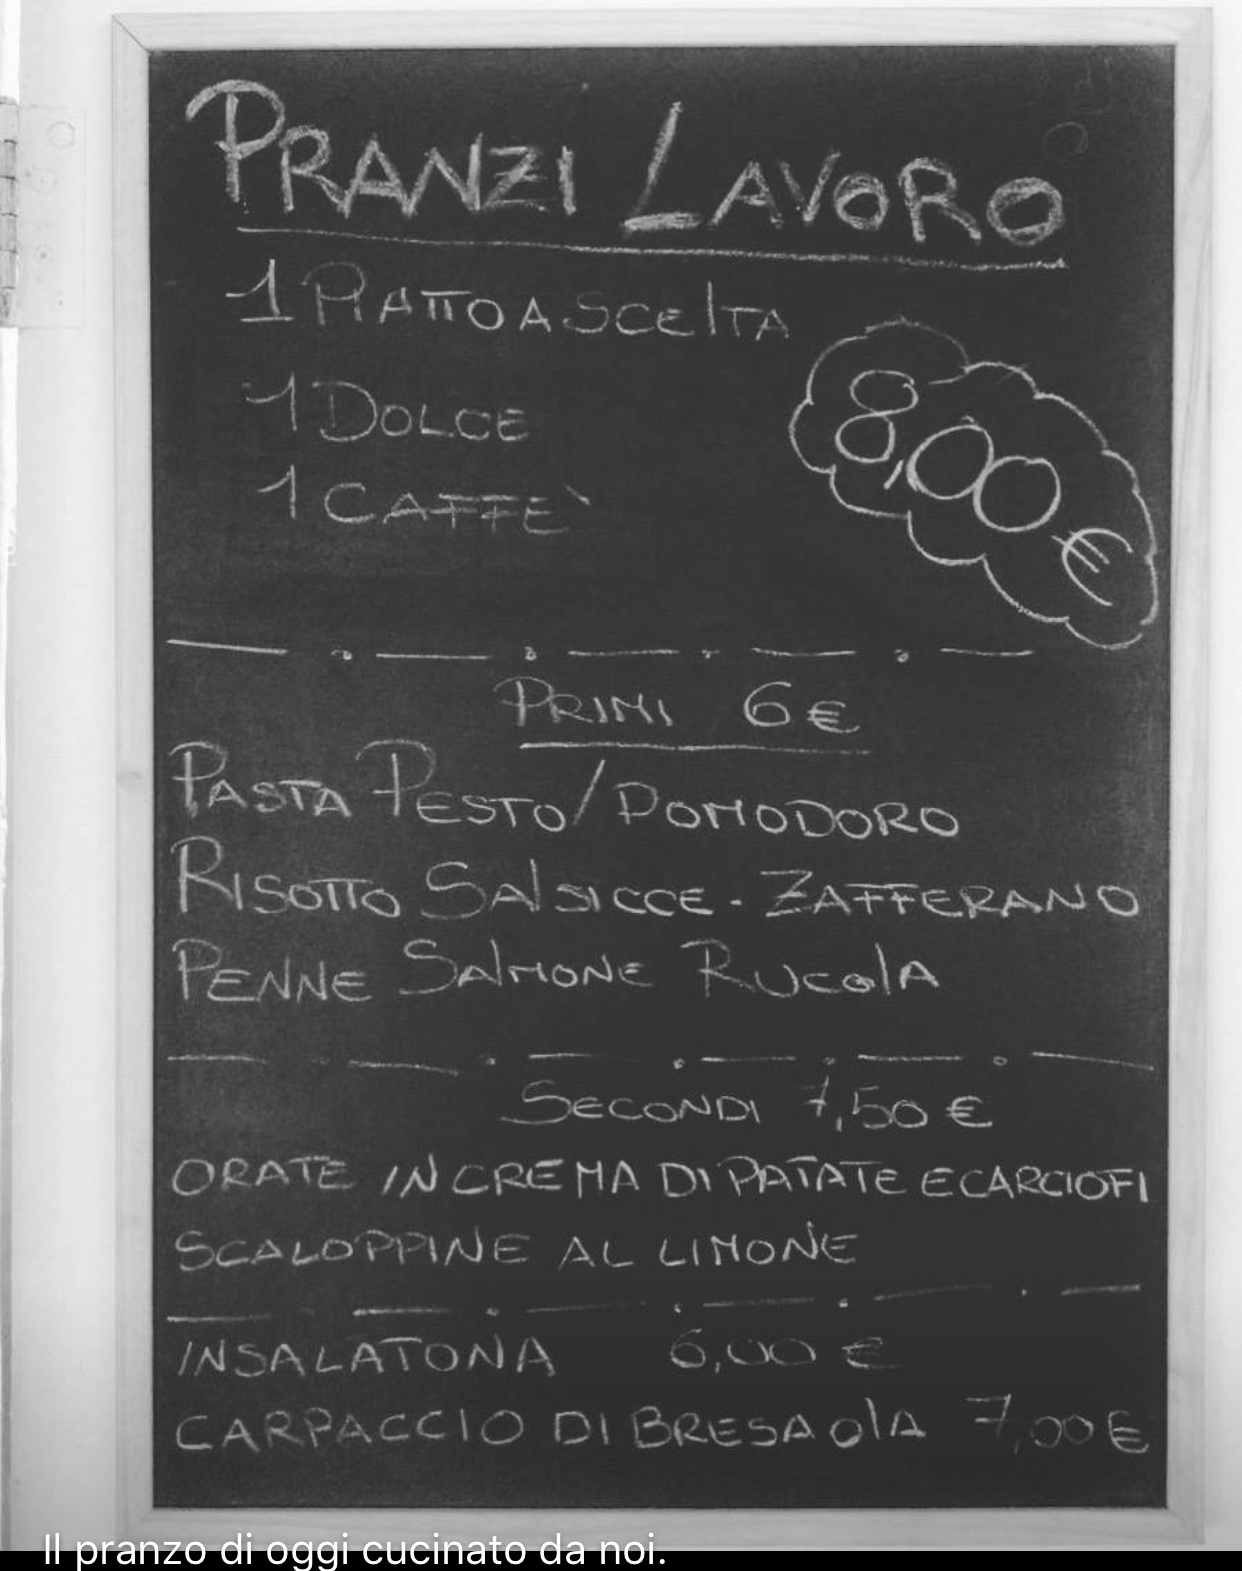 PRANZI LAVORO
1 PIATTO A SCELTA
1 DOLCE
1 CAFFÈ
8,00 €
PRIMI 6 €
PASTA PESTO/POMODORO
RISOTTO SALSICCE - ZAFFERANO
PENNE SALMONE RUCOLA
SECONDI 7,50 €
ORATE IN CREMA DI PATATE E CARCIOFI
SCALOPPINE AL LIMONE
INSALATONA 6,00 €
CARPACCIO DI BRESAOLA 7,00 €
Il pranzo di oggi cucinato da noi.